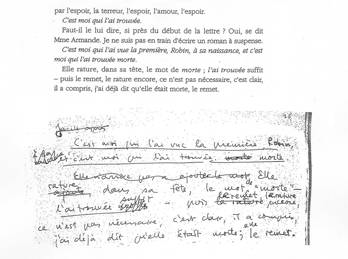 par l'espoir, la terreur, l'espoir, l'amour, l'espoir.
C'est moi qui l'ai trouvée.
Faut-il le lui dire, si près du début de la lettre ? Oui, se dit
Mme Armande. Je ne suis pas en train d'écrire un roman à suspense.
C'est moi qui l'ai vue la première, Robin, à sa naissance, et c'est
moi qui l'ai trouvée morte.
Elle rature, dans sa tête, le mot de morte ; l'ai trouvée suffit
– puis le remet, le rature encore, ce n'est pas nécessaire, c'est clair,
il a compris, j'ai déjà dit qu'elle était morte, le remet.
C'est moi qui l'ai vue la première, Robin,
et c'est moi qui l'ai trouvée morte
Elle
rature dans sa tête, le mot "morte" –
l'ai trouvée suffit – puis le remet, le rature encore,
ce n'est pas nécessaire, c'est clair, il a compris,
j'ai déjà dit qu'elle était morte, le remet.